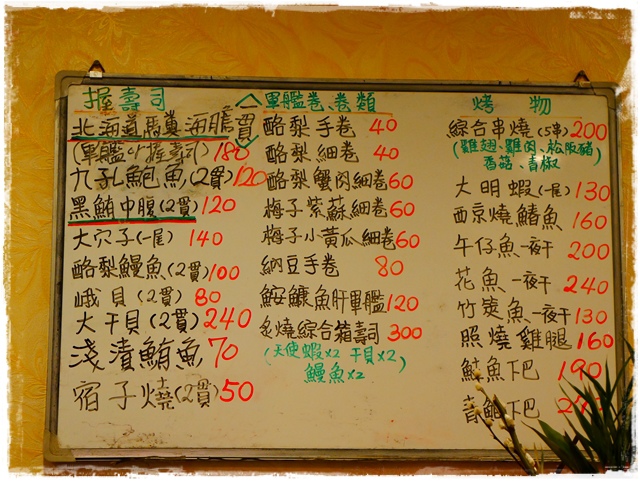 握壽司
北海道馬糞海膽
(軍艦or握壽司) 180
九孔鮑魚(2貫) 120
黑鮪中腹(2貫) 120
大穴子(一尾) 140
酪梨鰻魚(2貫) 100
峨貝(2貫) 80
大干貝(2貫) 240
淺漬鮪魚 70
宿子燒(2貫) 50
軍艦卷、卷類
酪梨手卷 40
酪梨細卷 40
酪梨蟹肉細卷 60
梅子紫蘇細卷 60
梅子小黃瓜細卷 60
納豆手卷 80
鮟鱇魚肝軍艦 120
炙燒綜合箱壽司 300
(天使蝦x2 干貝x2
鰻魚x2)
烤物
綜合串燒(5串) 200
(雞翅、雞肉、松阪豬
香菇、青椒)
大明蝦(一尾) 130
西京燒鰆魚 160
午仔魚一夜干 200
花魚一夜干 240
竹筴魚一夜干 130
照燒雞腿 160
鮭魚下巴 190
下巴